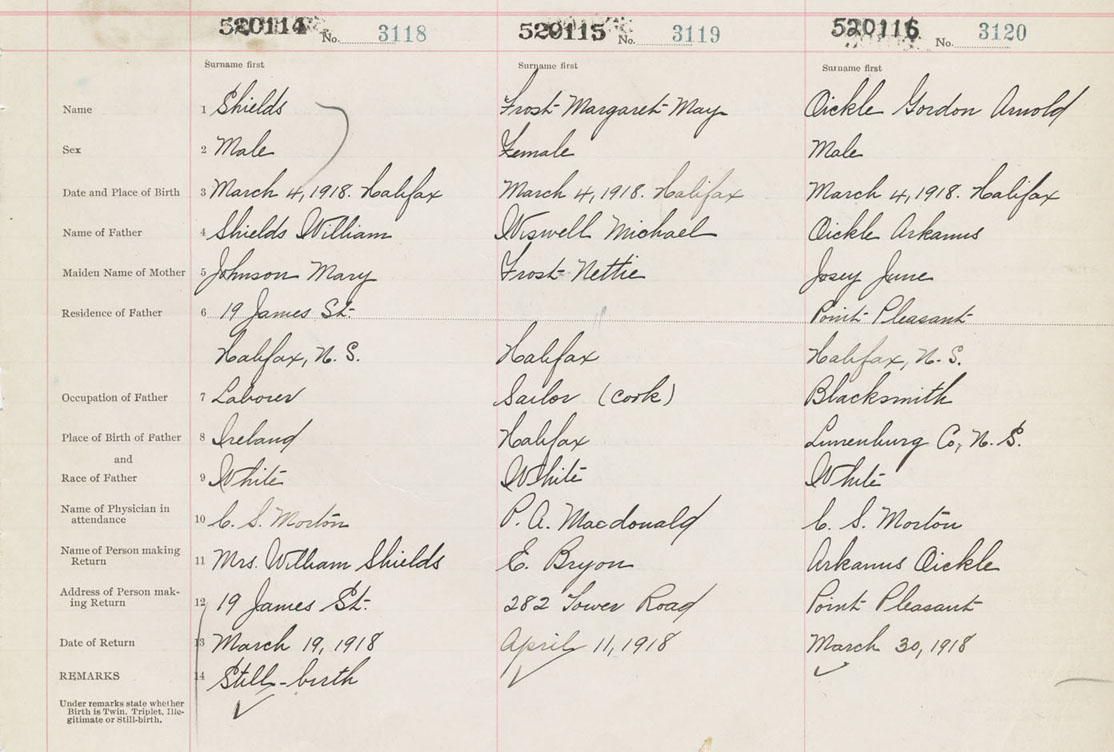 520114 No. 3118 520115 No. 3119 520116 No. 3120
Surname first Surname first Surname first
Name 1 Shields Frost Margaret May Oickle Gordon Arnold
Sex 2 Male Female Male
Date and Place of Birth 3 March 4, 1918. Halifax March 4, 1918. Halifax March 4, 1918. Halifax
Name of Father 4 Shields William Wiswell Michael Oickle Arkanus
Maiden Name of Mother 5 Johnson Mary Frost Nettie Josey June
Residence of Father 6 19 James St. Point Pleasant
Halifax, N. S. Halifax Halifax, N. S.
Occupation of Father 7 Laborer Sailor (Cook) Blacksmith
Place of Birth of Father 8 Ireland Halifax Lunenburg Co, N. S.
and
Race of Father 9 White White White
Name of Physician in
attendance 10 C. S. Morton P. A. Macdonald C. S. Morton
Name of Person making
Return 11 Mrs. William Shields E. Bryon Arkanus Oickle
Address of Person mak-
ing Return 12 19 James St. 282 Tower Road Point Pleasant
Date of Return 13 March 19, 1918 April 11, 1918 March 30, 1918
REMARKS 14 Still-birth
Under remarks state whether
Birth is Twin, Triplet, Ille-
gitimate or Still-birth.